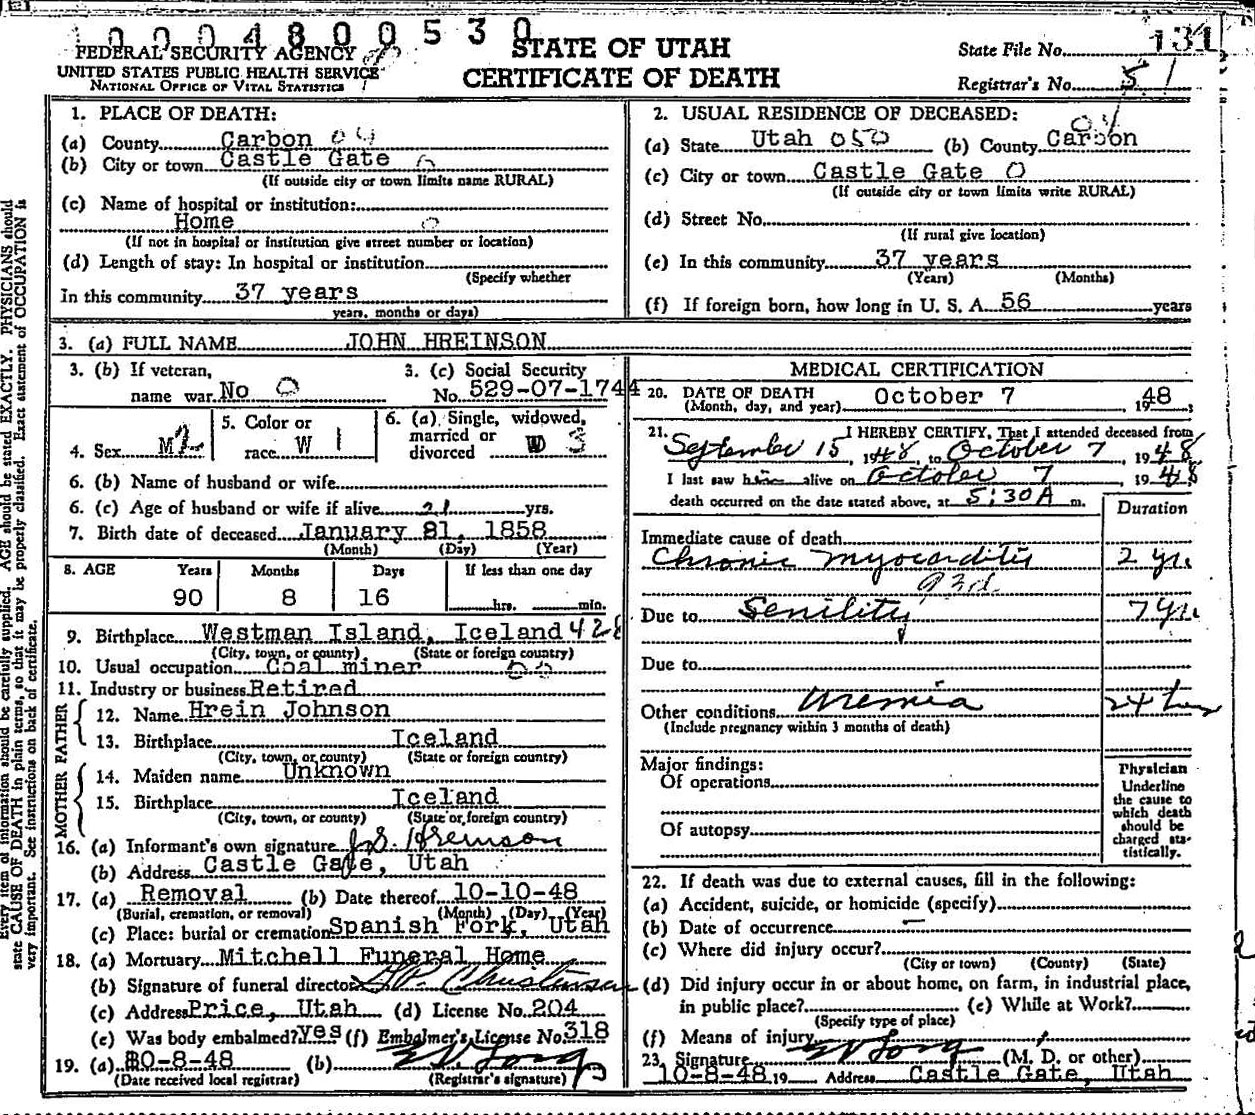 1 0 0 0 4 8 0 0 5 3 0
FEDERAL SECURITY AGENCY
UNITED STATES PUBLIC HEALTH SERVICE
NATIONAL OFFICE OF VITAL STATISTICS
STATE OF UTAH
CERTIFICATE OF DEATH
State File No. 131
Registrar's No. 51
1. PLACE OF DEATH:
(a) County Carbon 04
(b) City or town Castle Gate
(If outside city or town limits name RURAL)
(c) Name of hospital or institution:
Home 0
(If not in hospital or institution give street number or location)
(d) Length of stay: In hospital or institution
(Specify whether
In this community 37 years
years, months or days)
2. USUAL RESIDENCE OF DECEASED:
(a) State Utah 050 (b) County Carbon 04
(c) City or town Castle Gate 0
(If outside city or town limits write RURAL)
(d) Street No.
(If rural give location)
(e) In this community 37 years
(Years) (Months)
(f) If foreign born, how long in U. S. A. 56 years
3. (a) FULL NAME JOHN HREINSON
3. (b) If veteran,
name war No 0
3. (c) Social Security
No. 529-07-1744
4. Sex M
5. Color or
race W 1
6. (a) Single, widowed,
married or
divorced 3
6. (b) Name of husband or wife
6. (c) Age of husband or wife if alive yrs.
7. Birth date of deceased January 1858
(Month) (Day) (Year)
8. AGE Years Months Days If less than one day
90 8 16 hrs. min.
9. Birthplace Westman Island, Iceland 428
(City, town, or county) (State or foreign country)
10. Usual occupation Coal miner
11. Industry or business Retired
FATHER
12. Name Hrein Johnson
13. Birthplace Iceland
(City, town, or county) (State or foreign country)
MOTHER
14. Maiden name Unknown
15. Birthplace Iceland
(City, town, or county) (State or foreign country)
16. (a) Informant's own signature
(b) Address Castle Gate, Utah
17. (a) Removal (b) Date thereof 10-10-48
(Burial, cremation, or removal) (Month) (Day) (Year)
(c) Place: burial or cremation Spanish Fork, Utah
18. (a) Mortuary Mitchell Funeral Home
(b) Signature of funeral director
(c) Address Price, Utah (d) License No. 204
(e) Was body embalmed? yes (f) Embalmer's License No. 318
19. (a) 10-8-48 (b)
(Date received local registrar) (Registrar's signature)
MEDICAL CERTIFICATION
20. DATE OF DEATH
(Month, day, and year) October 7 , 1948;
21. I HEREBY CERTIFY, That I attended deceased from
September 15, 1948, to October 7 1948
I last saw him alive on October 7 1948
death occurred on the date stated above, at 5:30A m.
Duration
Immediate cause of death
Chronic myocarditis 2 yrs
93d
Due to Senility 7 yrs
Due to
Other conditions Uremia 24 hrs
(Include pregnancy within 3 months of death)
Major findings:
Of operations
Of autopsy
Physician
Underline
the cause to
which death
should be
charged sta-
tistically.
22. If death was due to external causes, fill in the following:
(a) Accident, suicide, or homicide (specify)
(b) Date of occurrence
(c) Where did injury occur?
(City or town) (County) (State)
(d) Did injury occur in or about home, on farm, in industrial place,
in public place? (e) While at Work?
(Specify type of place)
(f) Means of injury
23. Signature (M. D. or other)
10-8-48 19 Address Castle Gate, Utah
Every item of information should be carefully supplied. AGE should be stated EXACTLY. PHYSICIANS should
state CAUSE OF DEATH in plain terms, so that it may be properly classified. Exact statement of OCCUPATION is
very important. See instructions on back of certificate.